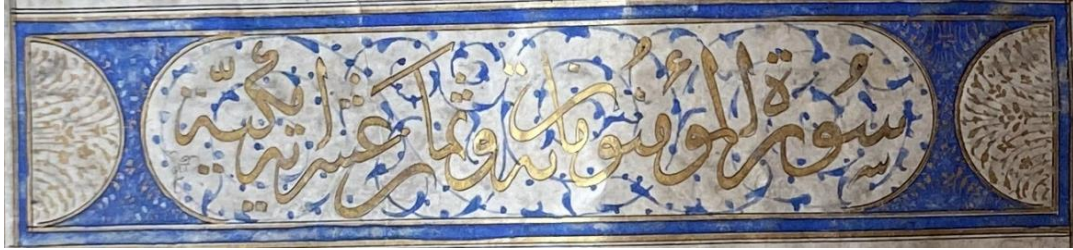 سورة المؤمنون ماية وثمان عشر اية مكية